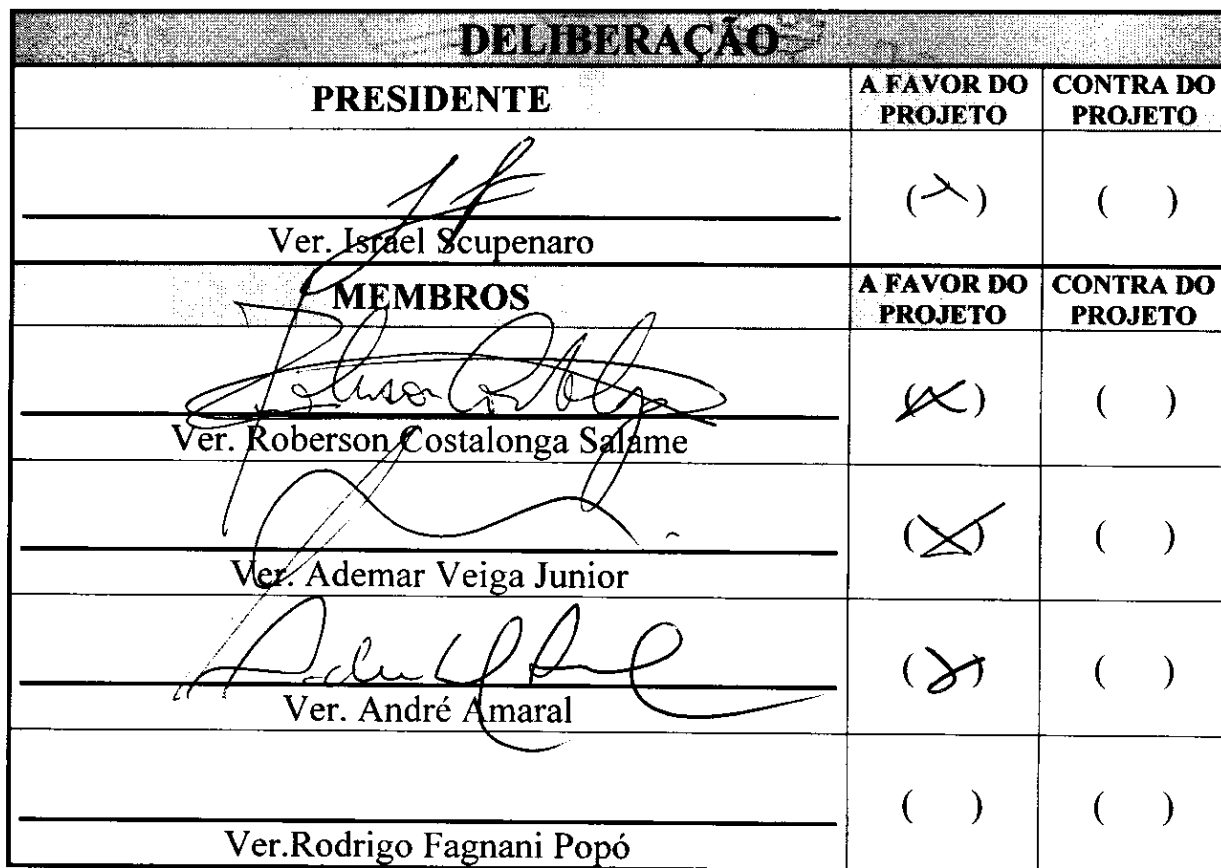 DELIBERAÇÃO
PRESIDENTE
A FAVOR DO PROJETO
CONTRA DO PROJETO
( ) ( )
Ver. Israel Scupenaro
MEMBROS
A FAVOR DO PROJETO
CONTRA DO PROJETO
(X) ( )
Ver. Roberson Costalonga Salame
(X) ( )
Ver. Ademar Veiga Junior
( ) ( )
Ver. André Amaral
( ) ( )
Ver.Rodrigo Fagnani Popó